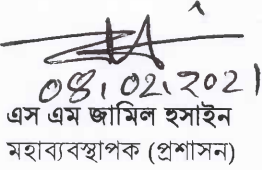 08.02.2021
এস এম জামিল হুসাইন
মহাব্যবস্থাপক (প্রশাসন)